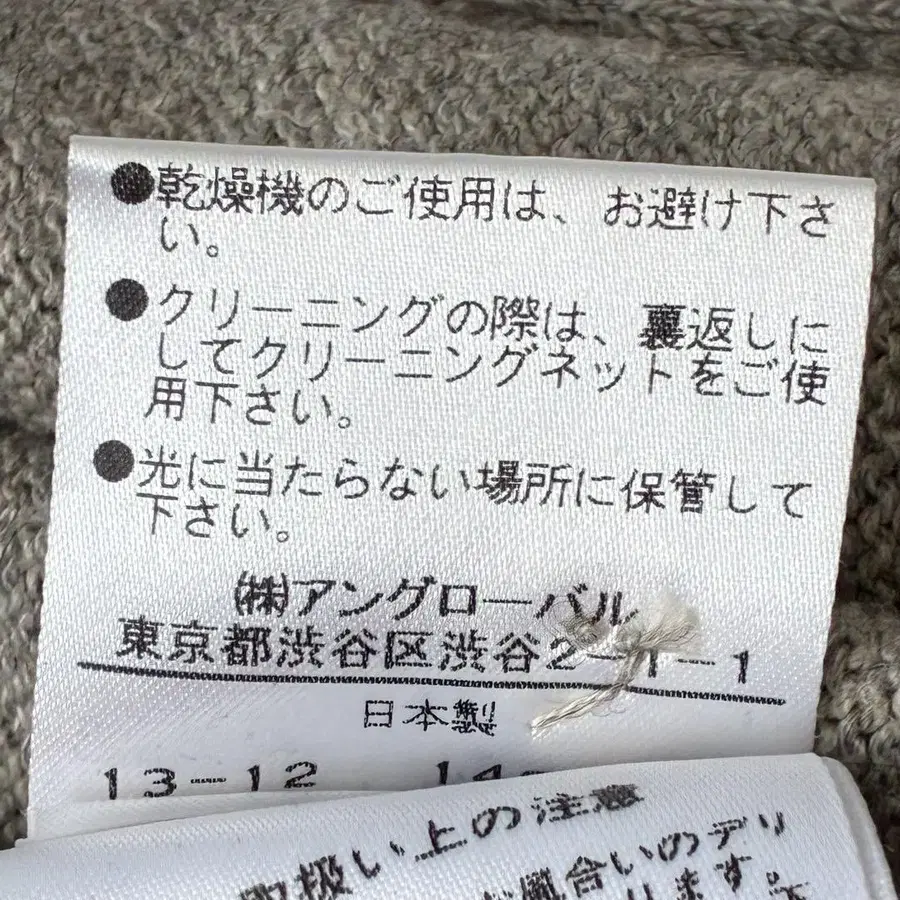 ●乾燥機のご使用は、お避け下さ
い。
●クリーニングの際は、裏返しに
してクリーニングネットをご使
用下さい。
●光に当たらない場所に保管して
下さい。
㈱アングローバル
東京都渋谷区渋谷2-1-1
日本製
13-12
取扱い上の注意
風合いのデリ
ります。